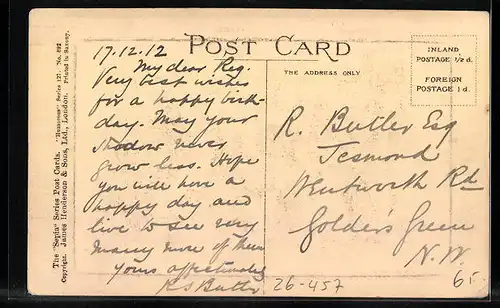 The "Sepia" Series Post Cards. "Humorous" Series 127. No. 892
Copyright. James Henderson & Sons, Ltd., London. Printed in Saxony.
17.12.12
POST CARD
THE ADDRESS ONLY
INLAND
POSTAGE ½d.
FOREIGN
POSTAGE 1d.
My dear Reg.
Very best wishes
for a happy birth-
day. May your
shadow never
grow less. Hope
you will have a
happy day and
live to see very
many more of them
Yours affectionately
Butler
R. Butler Esq
Jesmond
Wentworth Rd
Golder's Green
N.W.
26-457
65